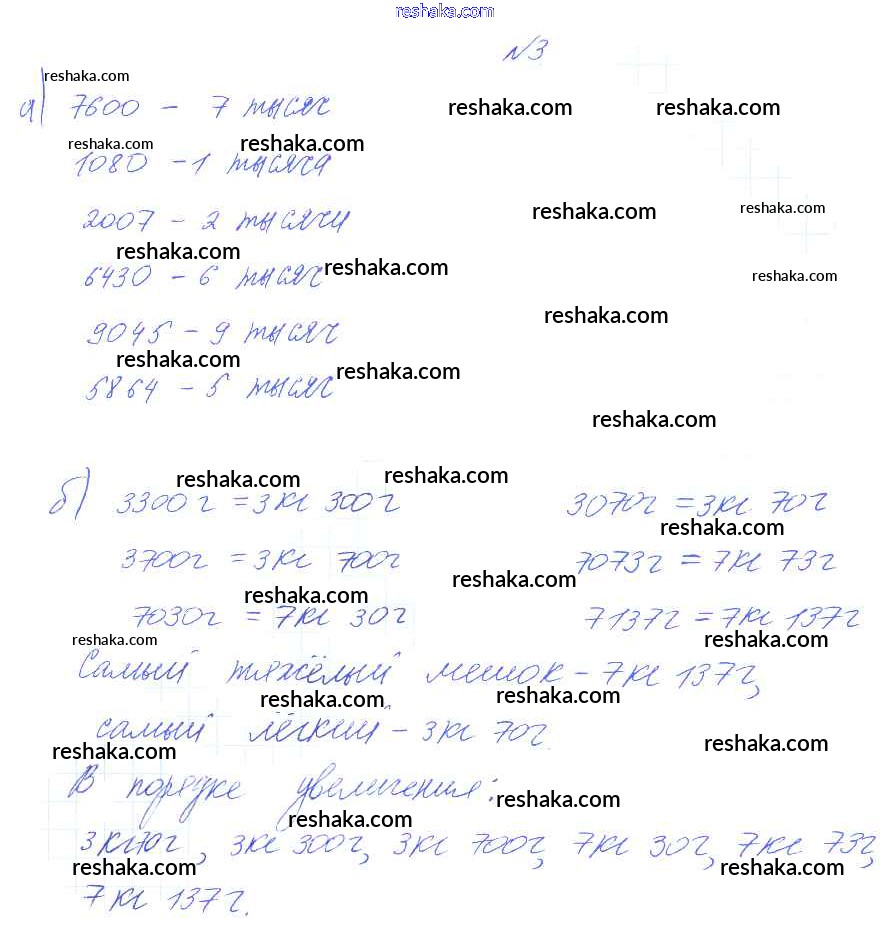 reshaka.com
№3
reshaka.com
а) 7600 - 7 тысяч
reshaka.com reshaka.com
reshaka.com reshaka.com
1080 - 1 тысяча
2007 - 2 тысячи
reshaka.com reshaka.com
reshaka.com reshaka.com
6430 - 6 тысяч
reshaka.com
reshaka.com
9045 - 9 тысяч
reshaka.com reshaka.com
5864 - 5 тысяч
reshaka.com
reshaka.com reshaka.com
б) 3300г = 3кг 300г 3070г = 3кг 70г
reshaka.com
3700г = 3кг 700г 7073г = 7кг 73г
reshaka.com
reshaka.com
7030г = 7кг 30г 7137г = 7кг 137г
reshaka.com reshaka.com
Самый тяжёлый мешок - 7кг 137г,
reshaka.com reshaka.com
самый лёгкий - 3кг 70г.
reshaka.com reshaka.com
В порядке увеличения:
reshaka.com
reshaka.com
3кг70г, 3кг 300г, 3кг 700г, 7кг 30г, 7кг 73г,
reshaka.com reshaka.com
7кг 137г.